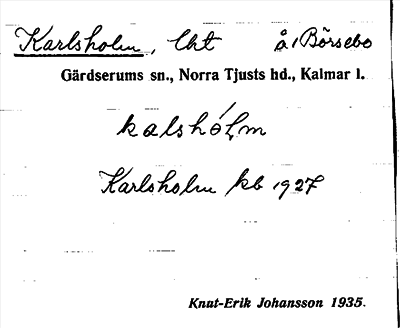 Karlsholm, lht å Börsebo
Gärdserums sn., Norra Tjusts hd., Kalmar l.
kalshólm
Karlsholm kb 1927
Knut-Erik Johansson 1935.